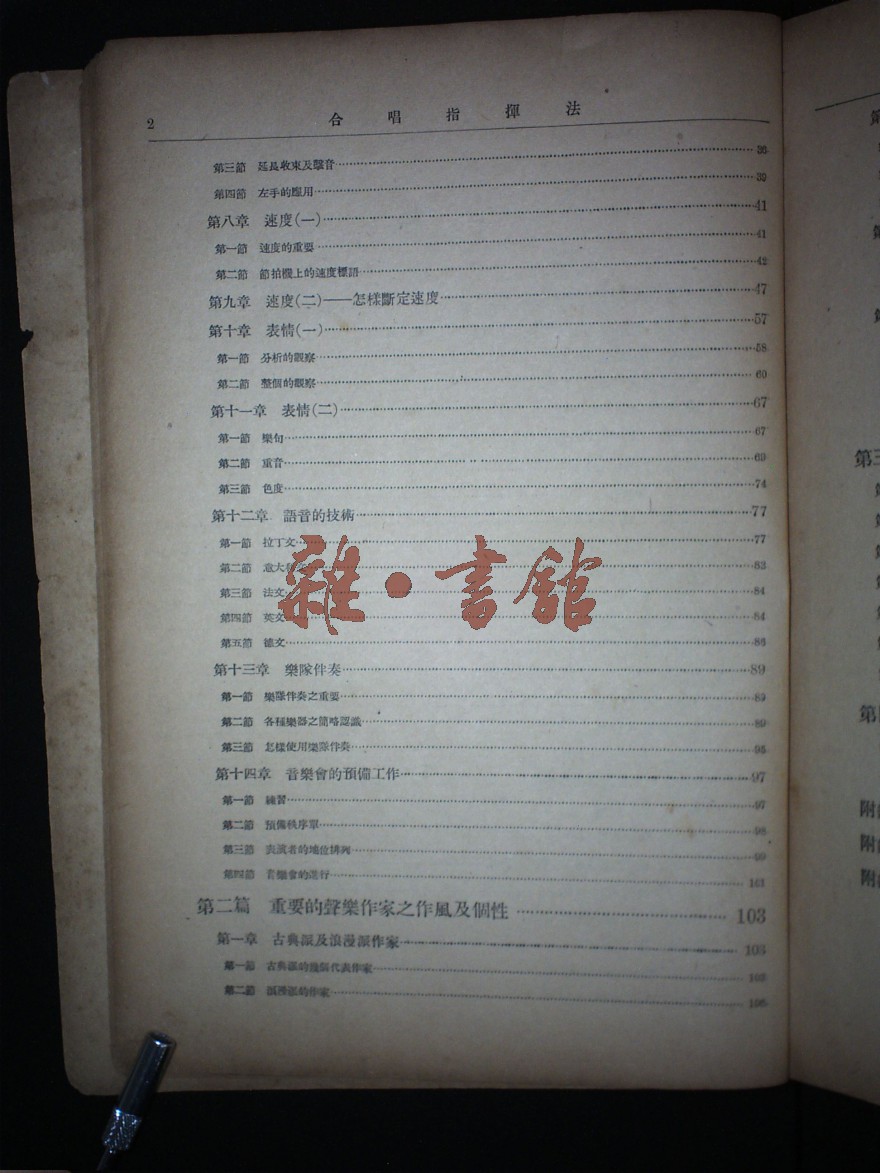 2 合唱指揮法
第三節 延長收束及斷音 36
第四節 左手的應用 39
第八章 速度(一) 41
第一節 速度的重要 41
第二節 節拍機上的速度標語 42
第九章 速度(二)——怎樣斷定速度 47
第十章 表情(一) 57
第一節 分析的觀察 58
第二節 整個的觀察 60
第十一章 表情(二) 67
第一節 樂句 67
第二節 重音 69
第三節 色度 74
第十二章 語音的技術 77
第一節 拉丁文 77
第二節 意大利文 83
第三節 法文 84
第四節 英文 84
第五節 德文 86
雜·書館
第十三章 樂隊伴奏 89
第一節 樂隊伴奏之重要 89
第二節 各種樂器之簡略認識 89
第三節 怎樣使用樂隊伴奏 95
第十四章 音樂會的預備工作 97
第一節 練習 97
第二節 預備秩序單 98
第三節 表演者的地位排列 99
第四節 音樂會的進行 101
第二篇 重要的聲樂作家之作風及個性 103
第一章 古典派及浪漫派作家 103
第一節 古典派的幾個代表作家 103
第二節 浪漫派的作家 106
第三
附
附
附